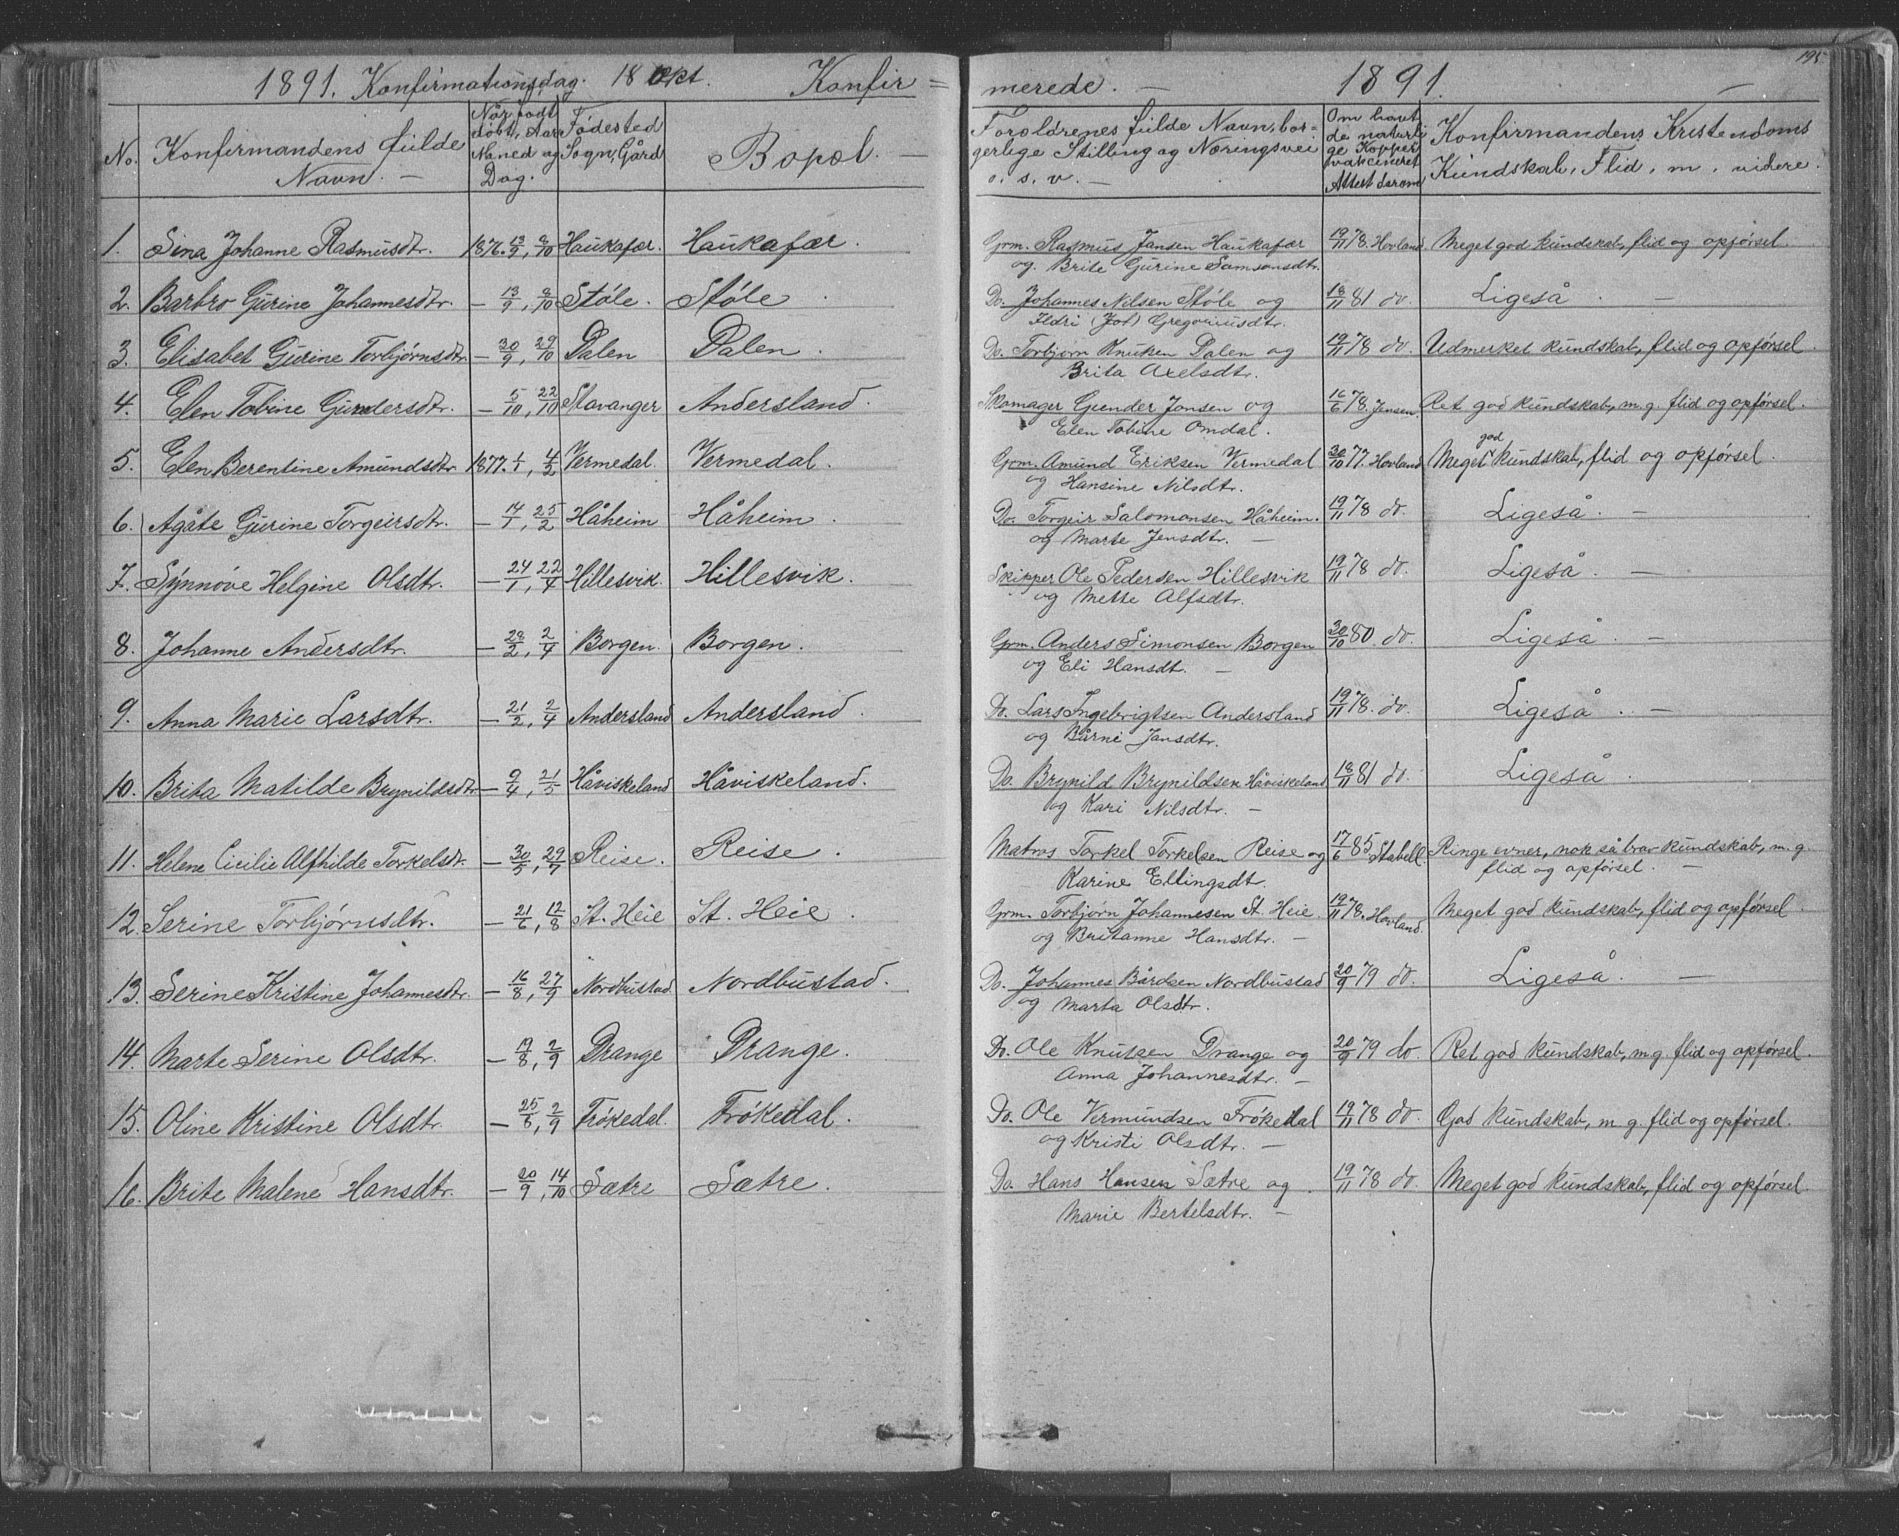 1891. Konfirmationsdag. 18 Okt. Konfir = merede. — 1891. — 195
No. Konfirmandens fulde Navn. — | Når født, døbt, Aar Maned og Dag. | Fødested Sogn, Gård | Bopæl. — | Forældrenes fulde Navn, borgerlige Stilling og Næringsvei o. s. v. — | Om havt de naturlige Kopper, vakcineret Attest derom | Konfirmandens Kristendoms Kundskab, Flid, m. videre.
1. Sina Johanne Rasmusdtr. 1876. 13/9, 8/10 Haukafær. Haukafær. Grm. Rasmus Jansen Haukafær 19/11 78. Hovland Meget god kundskab, flid og opførsel.
og Brite Gurine Samsonsdtr.
2. Barbro Gurine Johannesdtr. — 13/9, 8/10 Støle. Støle Do. Johannes Nilsen Støle og 18/11 81 do. Ligeså. —
Ildri (Joh) Gregoriusdtr.
3. Elisabet Gurine Torbjørnsdtr. — 30/9, 29/10 Dalen Dalen. Do. Torbjørn Knutsen Dalen og 19/11 78 do. Udmerket kundskab, flid og opførsel.
Brita Axelsdtr.
4. Elen Tobine Gundersdtr. — 5/10, 22/10 Stavanger Andersland. Skomager Gunder Jonsen og 16/6 78. Jensen. Ret god kundskab, m. g. flid og opførsel.
Elen Tobine Omdal.
5. Elen Berentine Amundsdtr. 1877. 1/1, 4/2 Vermedal. Vermedal. Grm. Amund Eriksen Vermedal 30/10 77. Hovland Meget god kundskab, flid og opførsel.
og Hansine Nilsdtr.
6. Agåte Gurine Torgeirsdtr. — 14/1, 25/2 Håheim Håheim. Do. Torgeir Salomonsen Håheim. 19/11 78 do. Ligeså. —
og Marte Jensdtr. —
7. Synnøve Helgine Olsdtr. — 24/1, 22/4 Hillesvik. Hillesvik. Skipper Ole Pedersen Hillesvik 19/11 78 do. Ligeså. —
og Mette Alfsdtr.
8. Johanne Andersdtr. — 28/2, 2/4 Borgen. Borgen. Grm. Anders Simonsen Borgen 30/10 80. do. Ligeså. —
og Eli Hansdt. —
9. Anna Marie Larsdtr. — 21/2, 2/4 Andersland Andersland. Do. Lars Ingebrigtsen Andersland 19/11 78. do. Ligeså. —
og Bårni Jansdtr.
10. Brita Matilde Brynildsdtr. — 9/4, 21/5 Håviskeland Håviskeland. Do. Brynild Brynildsen Håviskeland 18/11 81 do. Ligeså.
og Kari Nilsdtr. —
11. Helene Cicilie Alfhilde Torkelsdtr. — 30/5, 29/7 Reise. Reise. Matros Torkel Torkelsen Reise og 17/6 85 Stabell. Ringe evner, nok så brav kundskab, m. g.
Karine Ellingsdtr. flid og opførsel. —
12. Serine Torbjørnsdtr. — 21/6, 12/8 St. Heie St. Heie. Grm. Torbjørn Johannesen St. Heie. 19/11 78. Hovland. Meget god kundskab, flid og opførsel.
og Britanne Hansdtr. —
13. Serine Kristine Johannesdtr. — 16/8, 27/9 Nordbustad Nordbustad. Do. Johannes Bårdsen Nordbustad 20/9 79 do. Ligeså. —
og Marta Olsdtr.
14. Marte Serine Olsdtr. — 19/8, 2/9 Drange Drange. Do. Ole Knutsen Drange og 20/9 79 do. Ret god kundskab, m. g. flid og opførsel.
Anna Johannesdtr. —
15. Oline Kristine Olsdtr. — 25/8, 2/9 Frøkedal. Frøkedal. Do. Ole Vermundsen Frøkedal 19/11 78 do. God kundskab, m. g. flid og opførsel.
og Kristi Olsdtr. —
16. Brite Malene Hansdtr. — 20/9, 14/10 Sætre Sætre. Do. Hans Hansen Sætre og 19/11 78 do. Meget god kundskab, flid og opførsel.
Marie Bertelsdtr. —